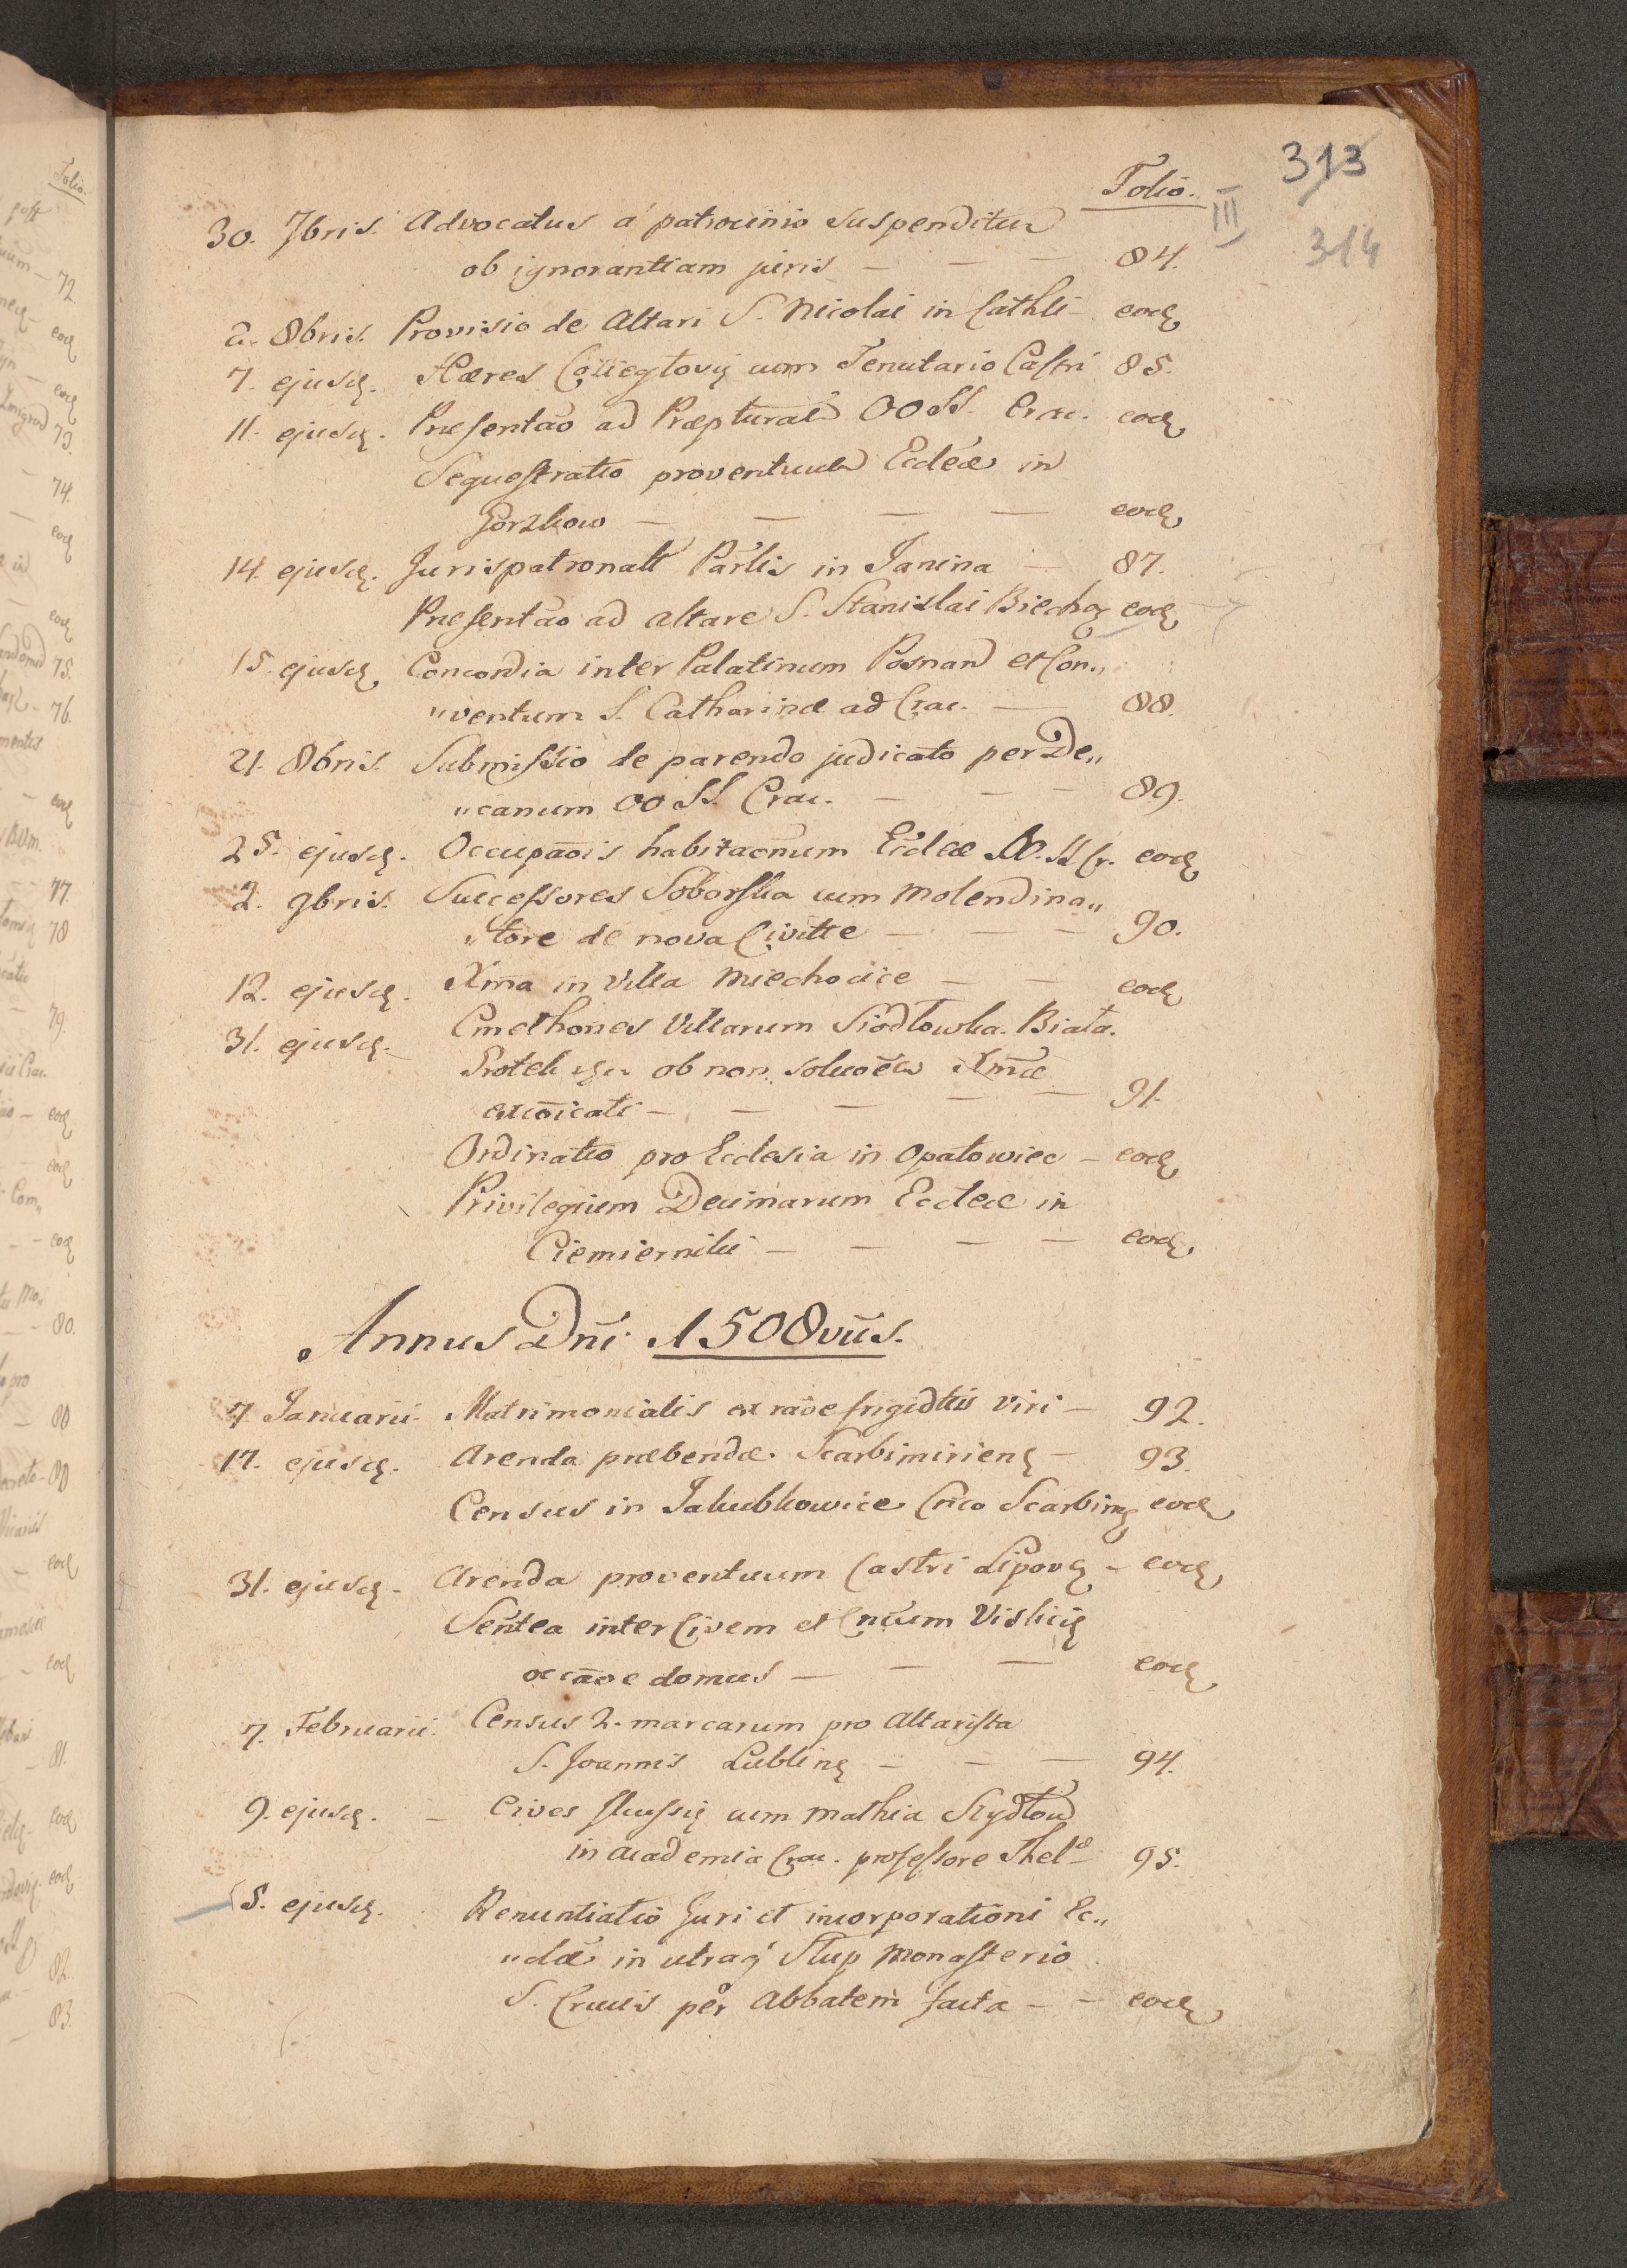 313
III
314
Folio.
30. 7bris. Advocatus a patrocinio suspenditur
ob ignorantiam juris — — — 84.
2. 8bris. Provisio de Altari S. Nicolai in Cathli — eod
7. ejusd. Hæres cum Tenutario Castri 85.
11. ejusd. Præsentāo ad Præptural OOSS. Crac. eod
Sequestratio proventuum Ecclēæ in
Gorzkow — — — — eod
14. ejusd. Jurispatronatt Pārtis in Janina — 87.
Præsentāo ad altare S. Stanislai Biechov eod
15. ejusd. Concordia inter Palatinum Posnan et Con„
„ventum S. Catharinæ ad Crac. — 88.
21. 8bris. Submissio de parendo judicato per De„
„canum OO SS. Crac. — — — 89.
25. ejusd. Occupāois habitaōnum Ecclæ OO. SS Cr. eod
2. 9bris. Successores Soborska cum Molendina„
„tore de nova Civitte — — — 90.
12. ejusd. Xma in Villa Miechocice — — eod
31. ejusd. Cmethones Villarum Siodłowka. Biała.
ob non soluōem Xmæ
excōicati — — — — — 91.
Ordinatio pro Ecclesia in Opatowiec — eod
Privilegium Decimarum Eccleæ in
Ciemierniki — — — — eod.
Annus Dni. 1508vus.
7. Januarii. Matrimonialis ex raōe frigidttis viri — 92.
17. ejusd. Arenda præbendæ Scarbimirien — 93.
Census in Jakubkowice Cnco Scarbim eod
31. ejusd. Arenda proventuum Castri Lipov — eod
Sentea inter Civem et Cncum Vislicii
occāoe domus — — — eod
7. Februarii. Census 2. marcarum pro Altarista
S. Joannis Lublin — — — 94.
9. ejusd. — Cives Slussii cum Mathia Szydłow
in academia Crac. professore Thel 95.
15. ejusd. Renuntiatio Juri et incorporationi Ec„
„clæ in utraq Słup Monasterio
S. Crucis per Abbatem facta — — eod